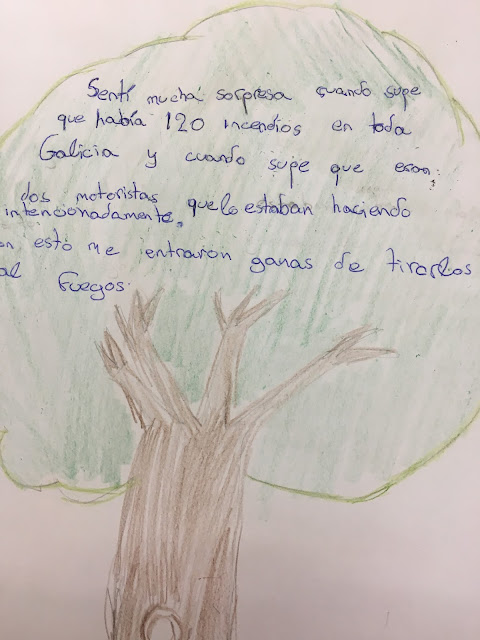 Sentí mucha sorpresa cuando supe
que había 120 incendios en toda
Galicia y cuando supe que eran
dos motoristas que lo estaban haciendo
intencionadamente,
on estó me entraron ganas de tirarlos
al fuegos.